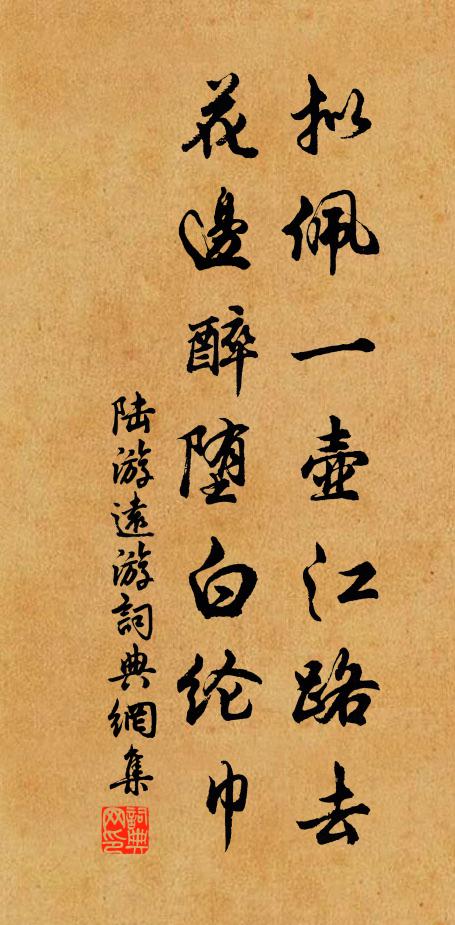 拟佩一壶江路去
花邊醉堕白纶巾
陆游遠游詞典網集
詞典网印